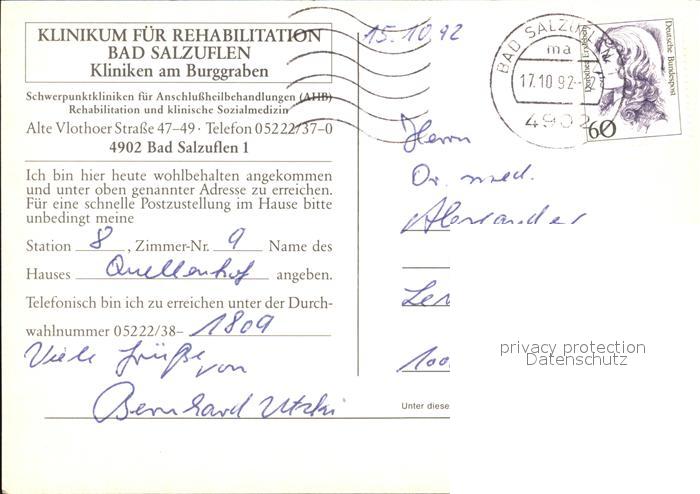 KLINIKUM FÜR REHABILITATION
BAD SALZUFLEN
Kliniken am Burggraben
Schwerpunktkliniken für Anschlußheilbehandlungen (AHB)
Rehabilitation und klinische Sozialmedizin
Alte Vlothoer Straße 47–49 · Telefon 05222/37–0
4902 Bad Salzuflen 1
Ich bin hier heute wohlbehalten angekommen
und unter oben genannter Adresse zu erreichen.
Für eine schnelle Postzustellung im Hause bitte
unbedingt meine
Station 8, Zimmer-Nr. 9 Name des
Hauses Quellenhof angeben.
Telefonisch bin ich zu erreichen unter der Durch-
wahlnummer 05222/38– 1809
Viele Grüße
von
Bernhard Utzki
15.10.92
BAD SALZUFLEN
ma
17.10.92
4902
Deutsche Bundespost
60
Herrn
Dr. med.
Alexander
100
Unter diese
privacy protection
Datenschutz